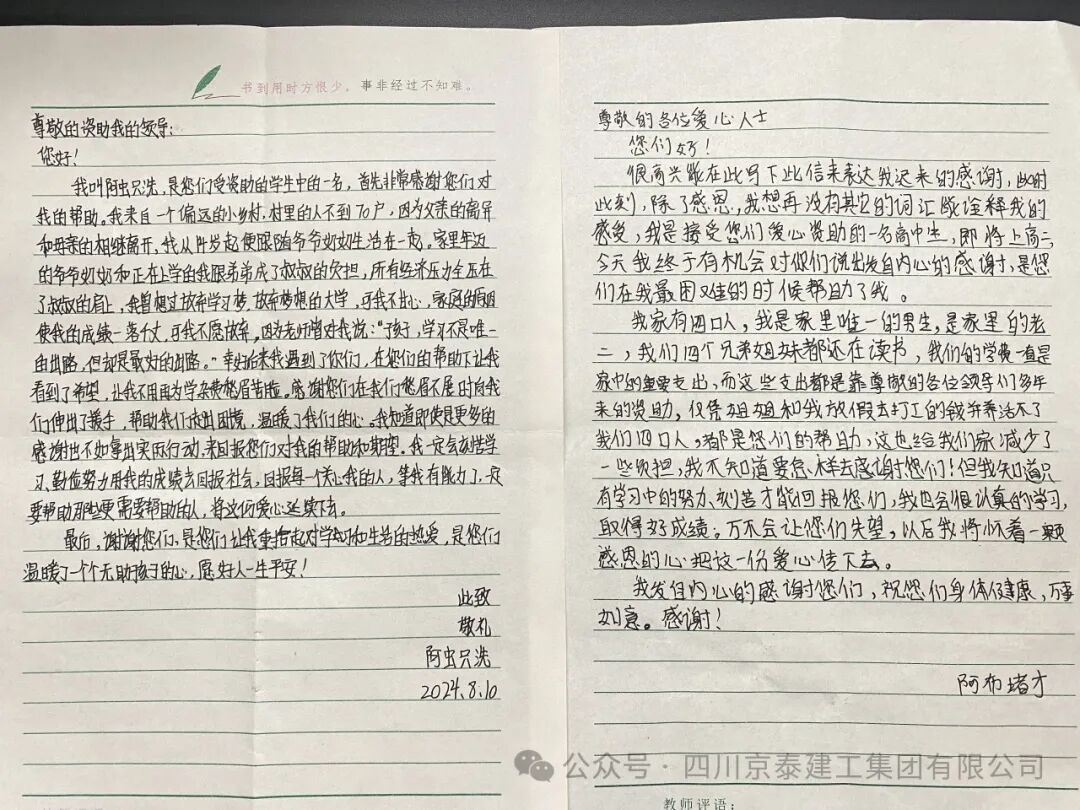 书到用时方恨少，事非经过不知难。
尊敬的资助我的领导：
您好！
我叫阿虫只洗，是您们受资助的学生中的一名，首先非常感谢您们对
我的帮助。我来自一个偏远的小乡村，村里的人不到70户，因为父亲的离异
和母亲的相继离开，我从件发起便跟随爷爷奶奶生活在一起。家里年迈
的爷爷奶奶和正在上学的我跟弟弟成了叔叔的负担，所有经济压力全压在
了叔叔的肩上，我曾想过放弃学习梦，放弃梦想的大学，可我不甘心，家庭的原因
使我的成绩一落千丈，可我不愿放弃。因为老师曾对我说："孩子，学习不是唯一
的出路，但却是最好的出路。"幸好后来我遇到了你们，在您们的帮助下让我
看到了希望，让我不用再为学杂费愁眉苦脸。感谢您们在我们愁眉不展时向我
们伸出了援手，帮助我们走出困境，温暖了我们的心。我知道即使是更多的
感谢也不如拿出实际行动，来回报您们对我的帮助和期望。我一定会刻苦学
习、勤俭努力用我的成绩去回报社会，回报每一个关心我的人，等我有能力了，一定
要帮助那些更需要帮助的人，将这份爱心延续下去。
最后，谢谢您们、是您们让我重拾起对学习和生活的热爱，是您们
温暖了一个个无助孩子的心，愿好人一生平安！
此致
敬礼
阿虫只洗
2024.8.10
尊敬的各位爱心人士
您们好！
很高兴能在此写下此信来表达我迟来的感谢，此时
此刻，除了感恩，我想再没有其它的词汇能诠释我的
感受，我是接受您们爱心资助的一名高中生，即将上高三，
今天我终于有机会对你们说出发自内心的感谢，是您
们在我最困难的时候帮助了我。
我家有四口人，我是家里唯一的男生，是家里的老
二，我们四个兄弟姐妹都还在读书，我们的学费一直是
家中的重要支出，而这些支出都是靠尊敬的各位领导们多年
来的资助，仅凭姐姐和我放假去打工的钱养活不了
我们四口人，都是您们的帮助，这也给我们家减少了
一些负担，我不知道要怎样去感谢您们！但我知道只
有学习中的努力、刻苦才能回报您们，我也会很认真的学习，
取得好成绩；万不会让您们失望，以后我将怀着一颗
感恩的心把这一份爱心传下去。
我发自内心的感谢您们，祝您们身体健康，万事
如意。感谢！
阿布堵才
公众号·四川京泰建工集团有限公司
教师评语：